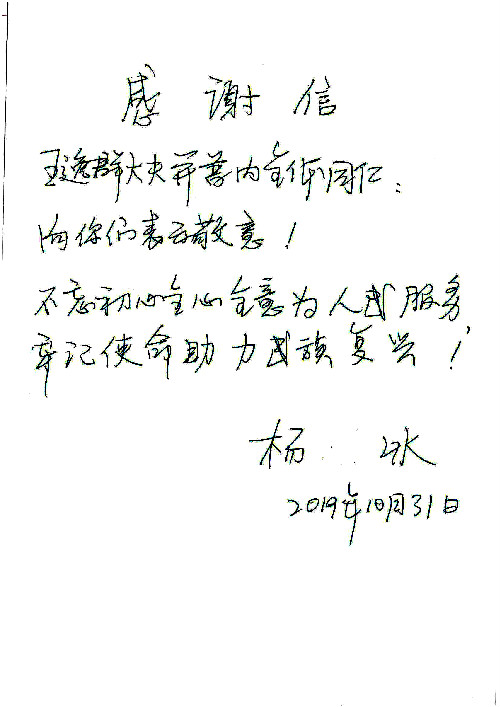 感谢信
王逸群大夫并普内全体同仁：
向你们表示敬意！
不忘初心全心全意为人民服务
牢记使命助力民族复兴！
杨冰
2019年10月31日